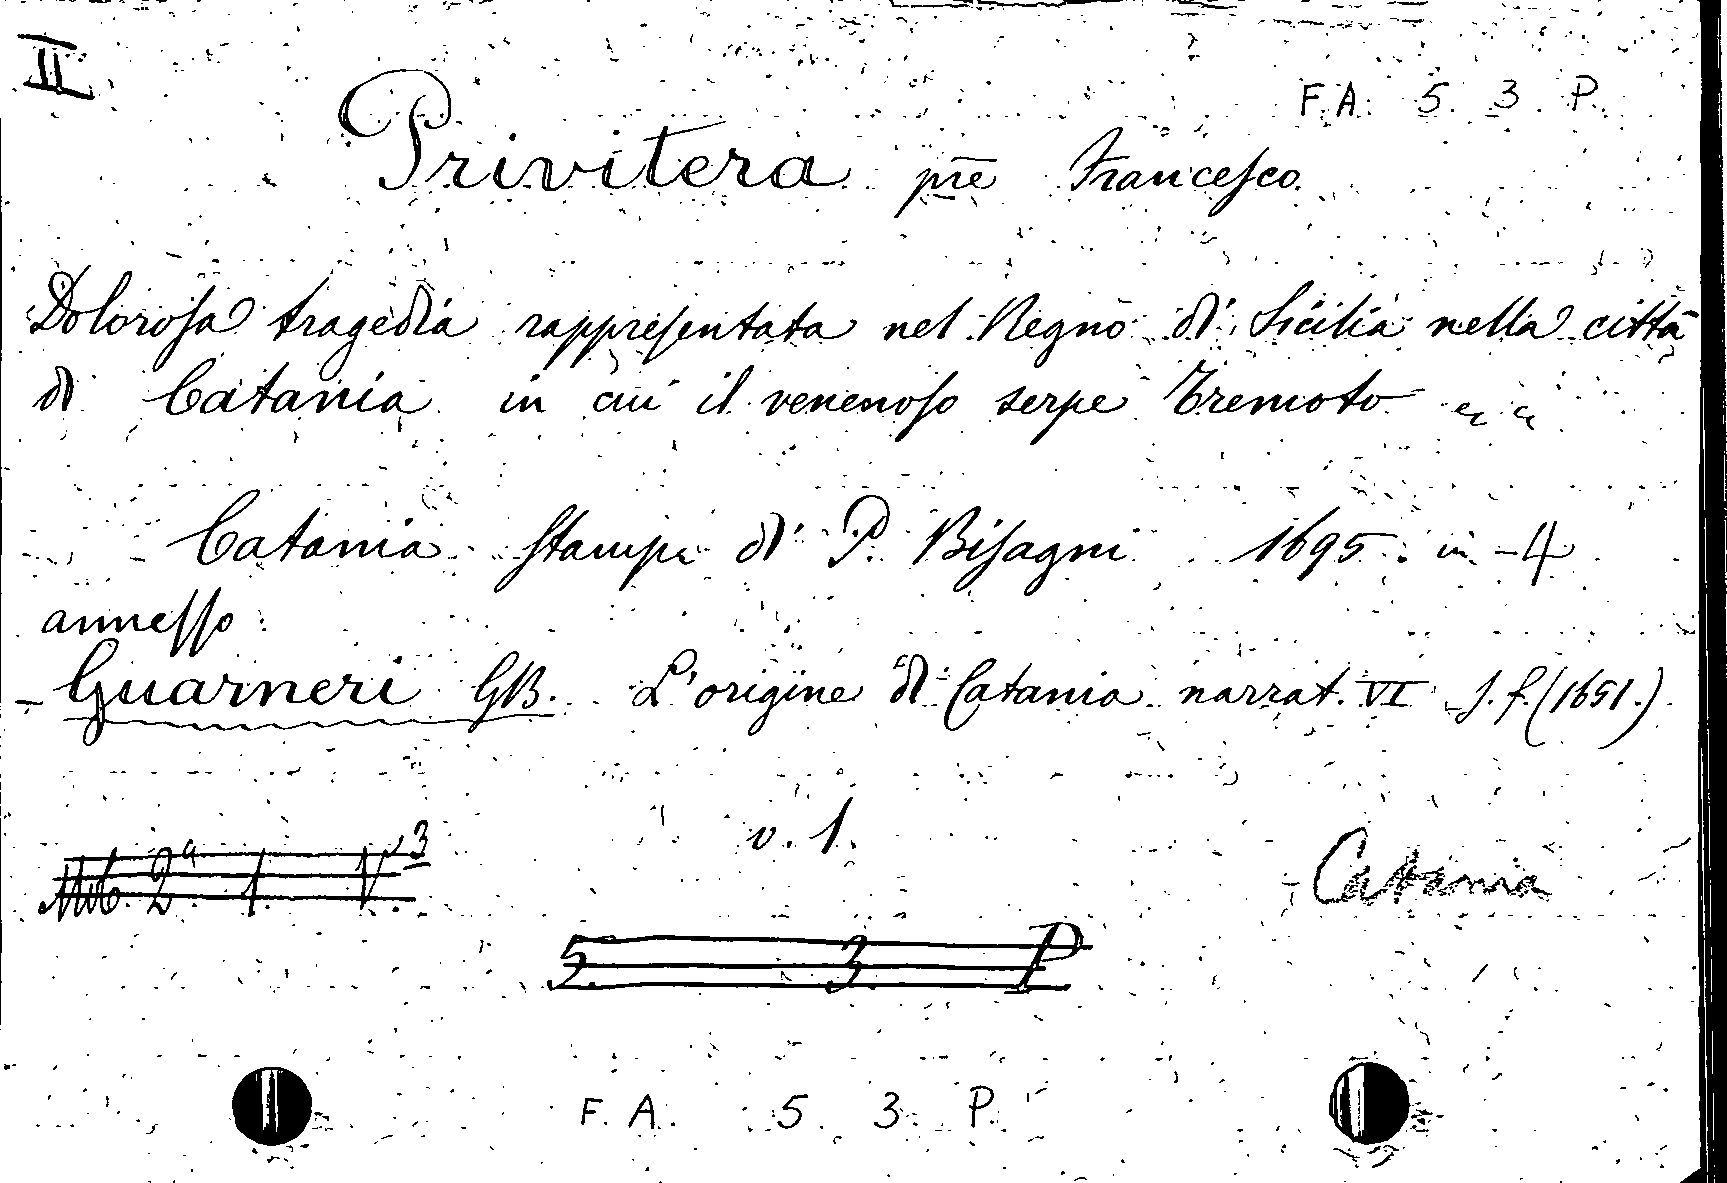 II
F. A. 5. 3. P.
Privitera pre Francesco.
Dolorosa tragedia rappresentata nel Regno di Sicilia nella città
di Catania in cui il venenoso serpe Tremoto
Catania Stamp. di P. Bisagni 1695. in-4
annesso:
- Guarneri GB. L'origine di Catania narrat. VI s. f. (1651.)
v. 1.
2ª 1. V 3
Catania
5. 3. P
F. A. 5. 3. P.